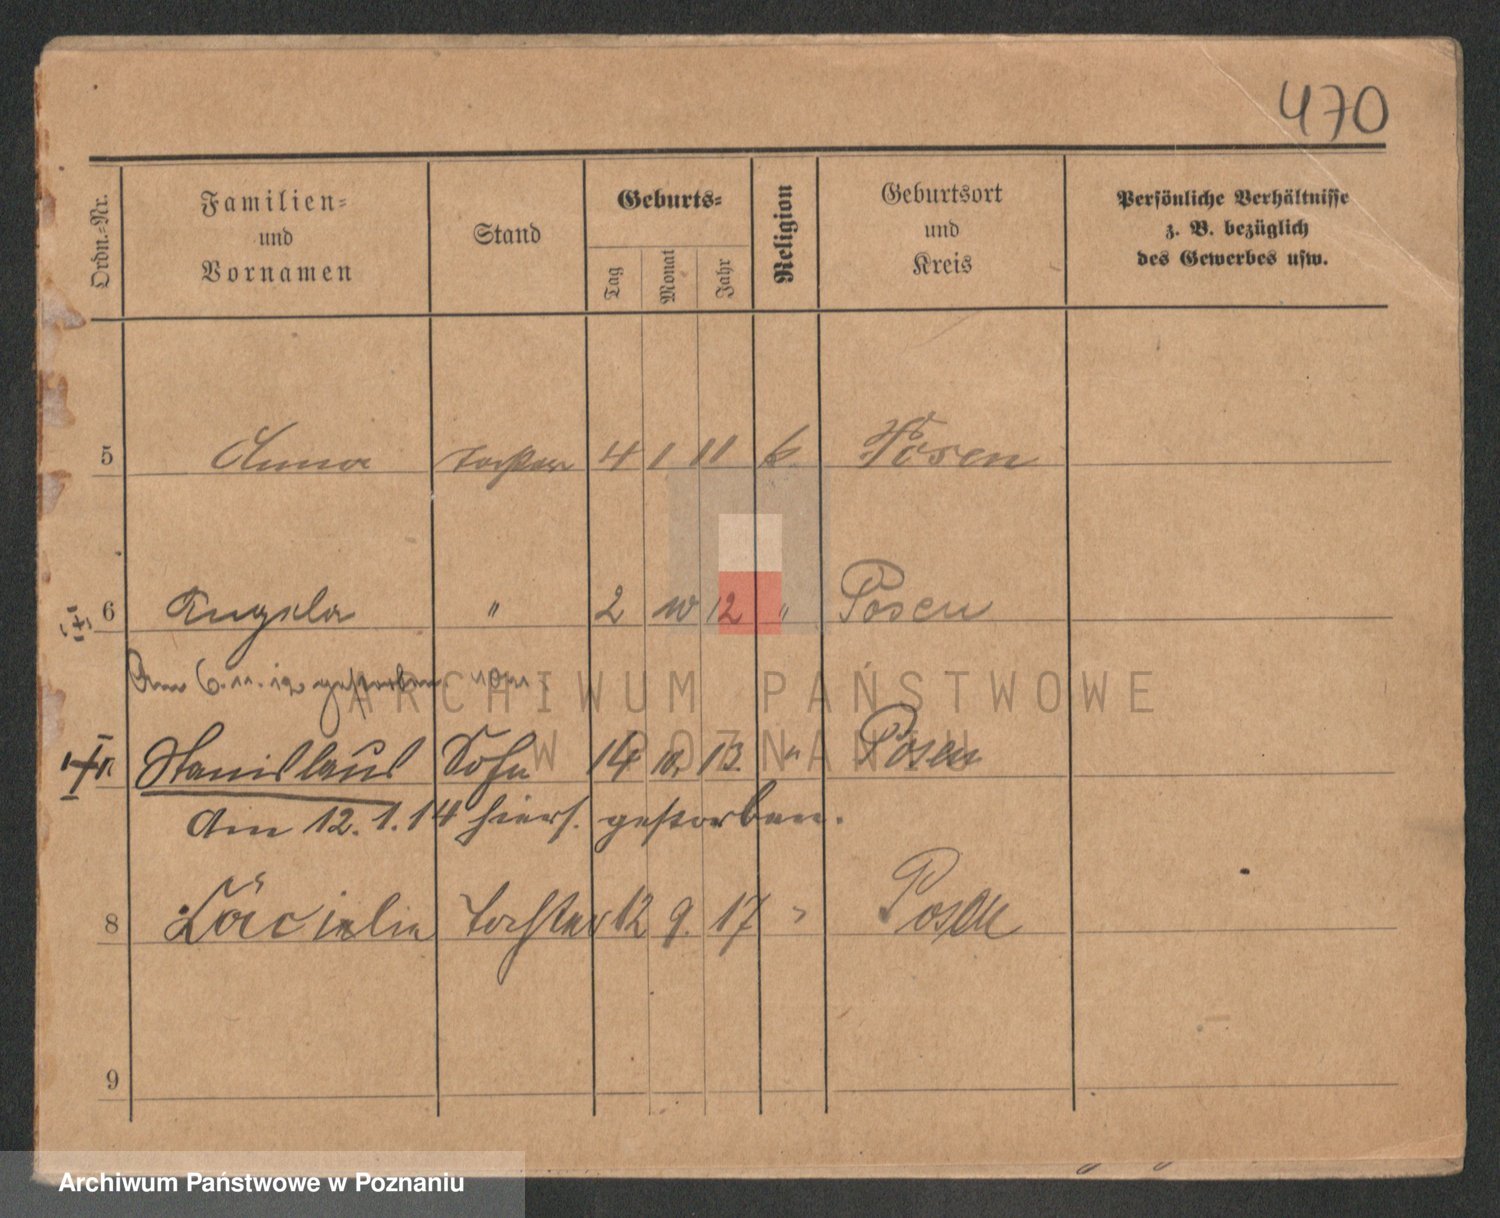 470
Ordn.-Nr.
Familien-
und
Vornamen
Stand
Geburts-
Tag
Monat
Jahr
Religion
Geburtsort
und
Kreis
Persönliche Verhältnisse
z. B. bezüglich
des Gewerbes usw.
5 Anna Tochter 4 1 11 k. Posen
6 Angela " 2 10 12 " Posen
Am 6.11.12 gestorben
Stanislaus Sohn 14 10. 13. " Posen
Am 12.1.14 hiers. gestorben.
8 Cäcilie Tochter 12 9. 17 " Posen
9
ARCHIWUM PAŃSTWOWE
W POZNANIU
Archiwum Państwowe w Poznaniu